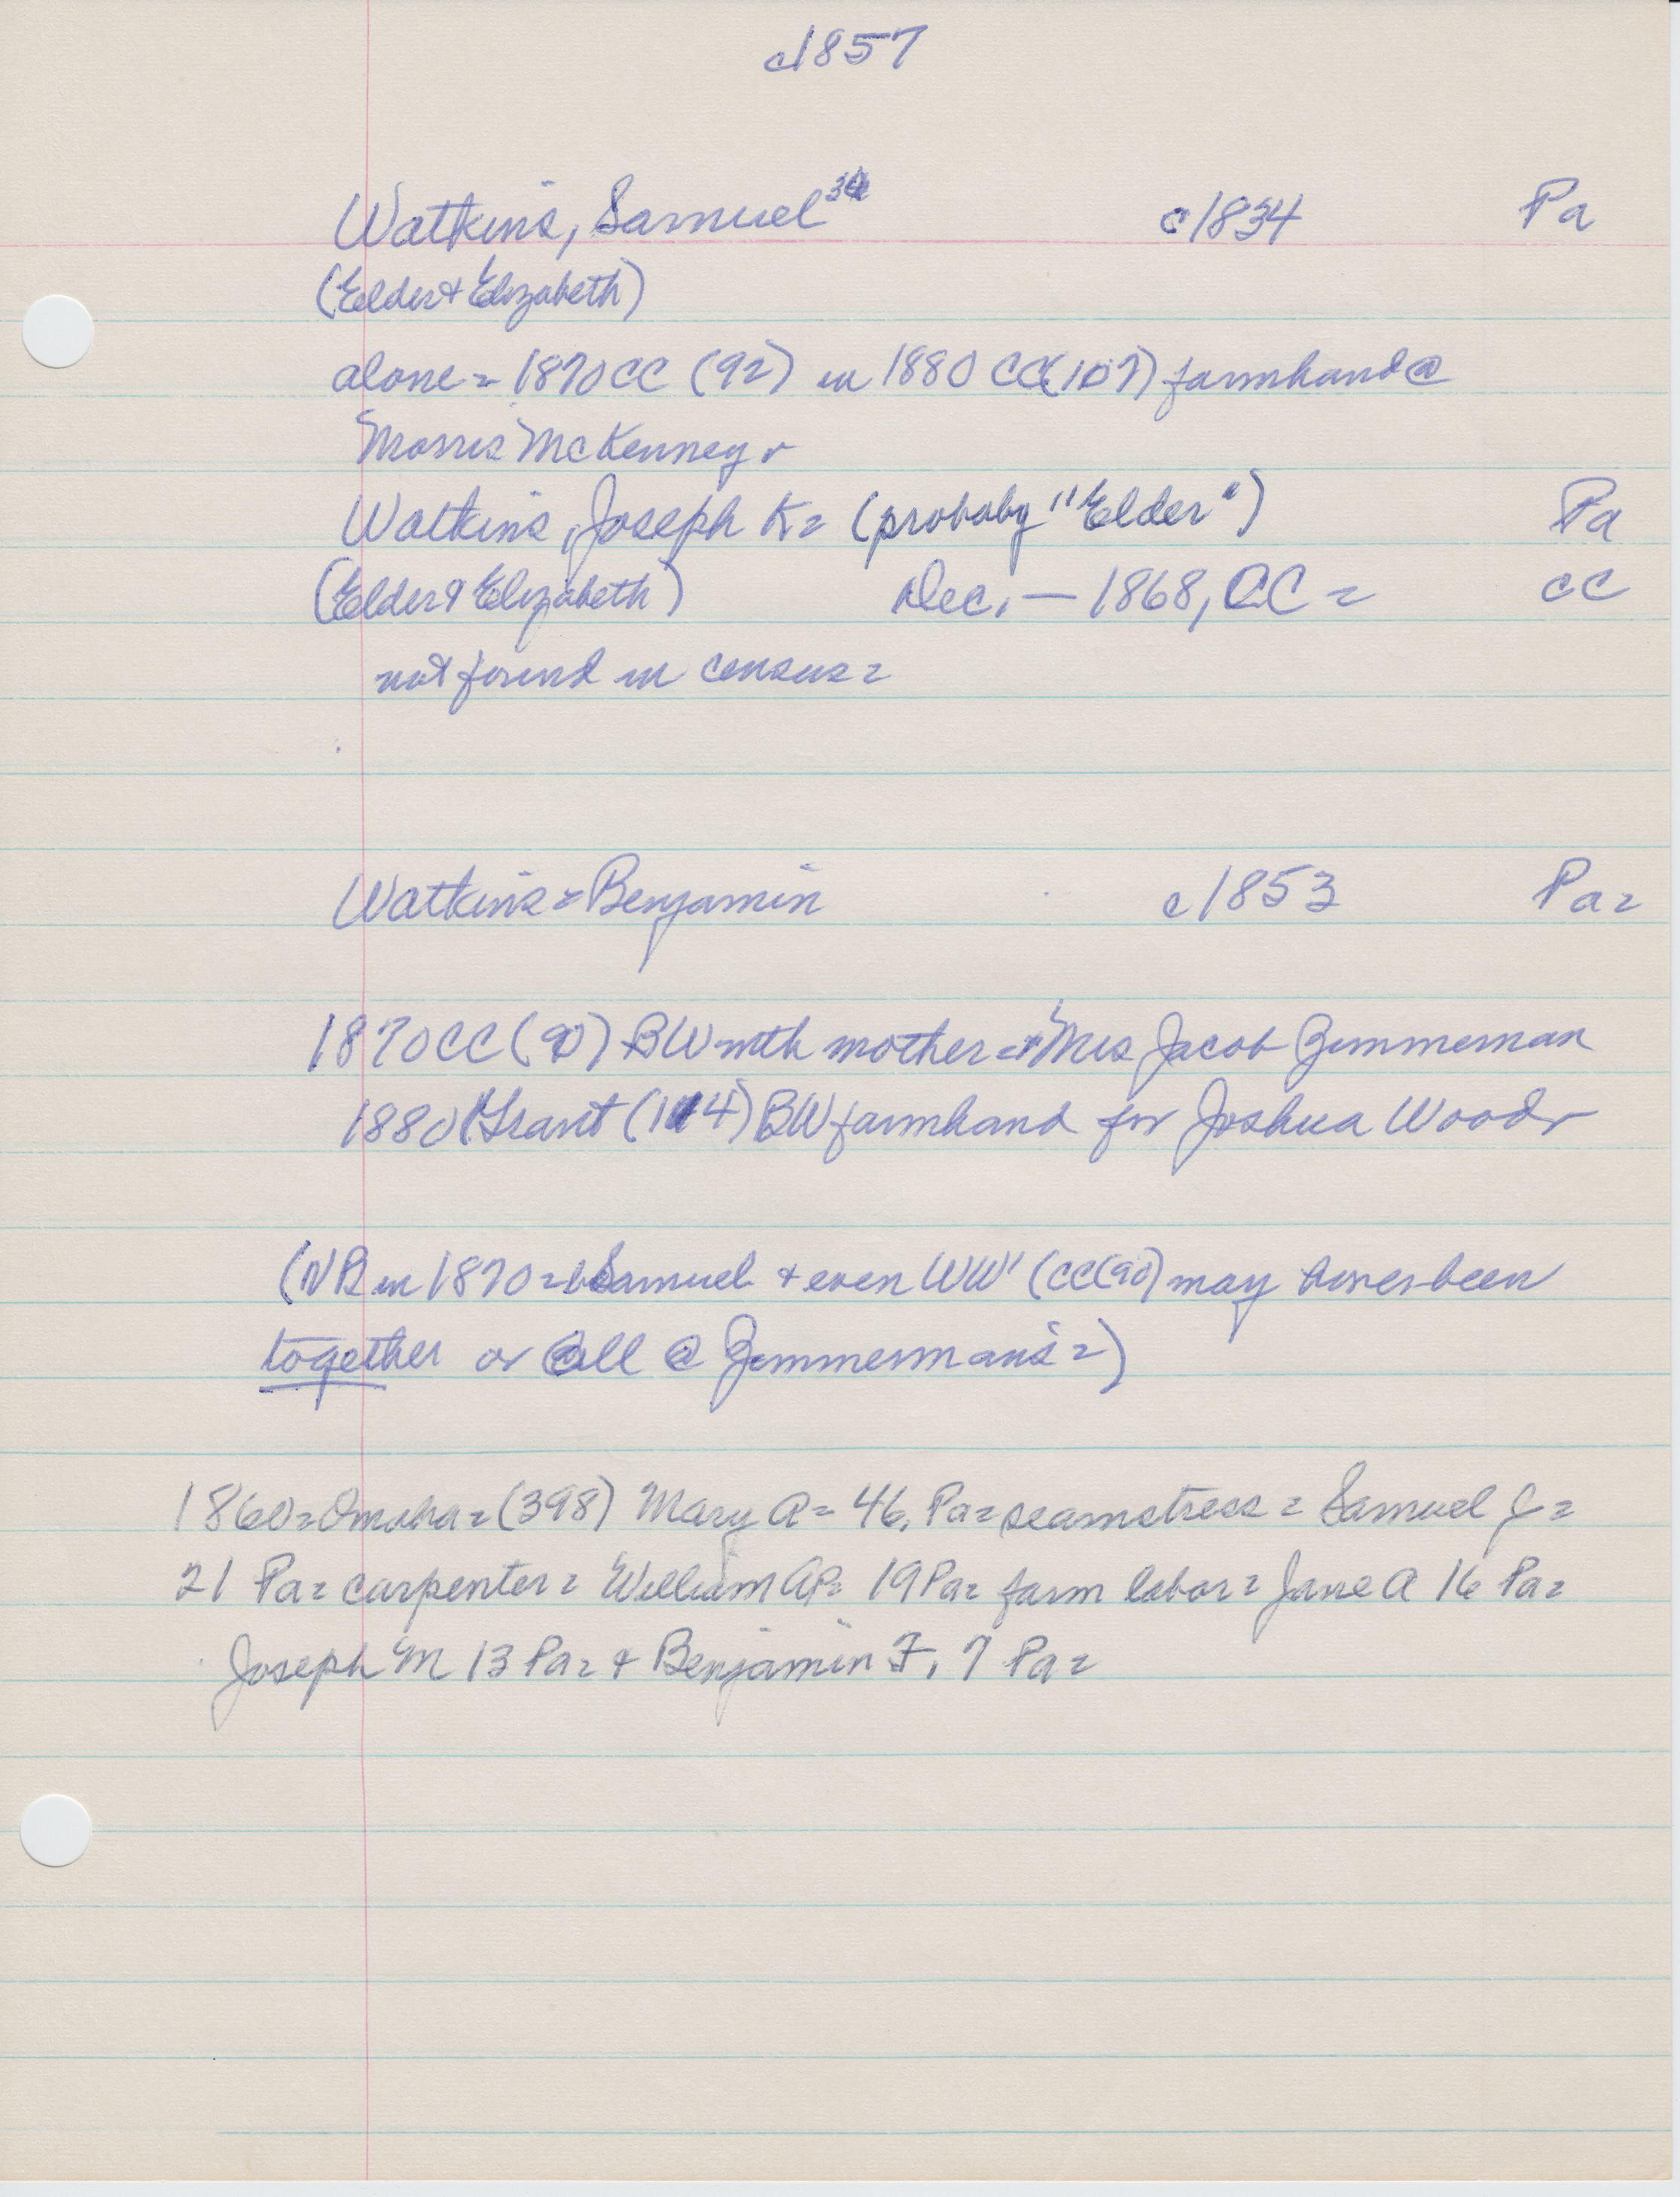 c1857
Watkins, Samuel c1834 Pa
(Elder + Elizabeth)
alone = 1870 CC (92) in 1880 CC (107) farmhand @
Morris McKenney
Watkins, Joseph K = (probaby "Elder") Pa
(Elder & Elizabeth) Dec. — 1868, CC = CC
not found in census =
Watkins = Benjamin c1853 Pa =
1870 CC (90) BW with mother = + Mrs Jacob Zimmerman
1880 Grant (114) BW farmhand for Joshua Woods
(NB in 1870 = Samuel + even WW' (CC(90) may have been
together or all @ Zimmermans = )
1860 = Omaha = (398) Mary A = 46, Pa = seamstress = Samuel J =
21 Pa = carpenter = William AP = 19 Pa = farm labor = Jane A 16 Pa =
Joseph M 13 Pa = + Benjamin F. 7 Pa =